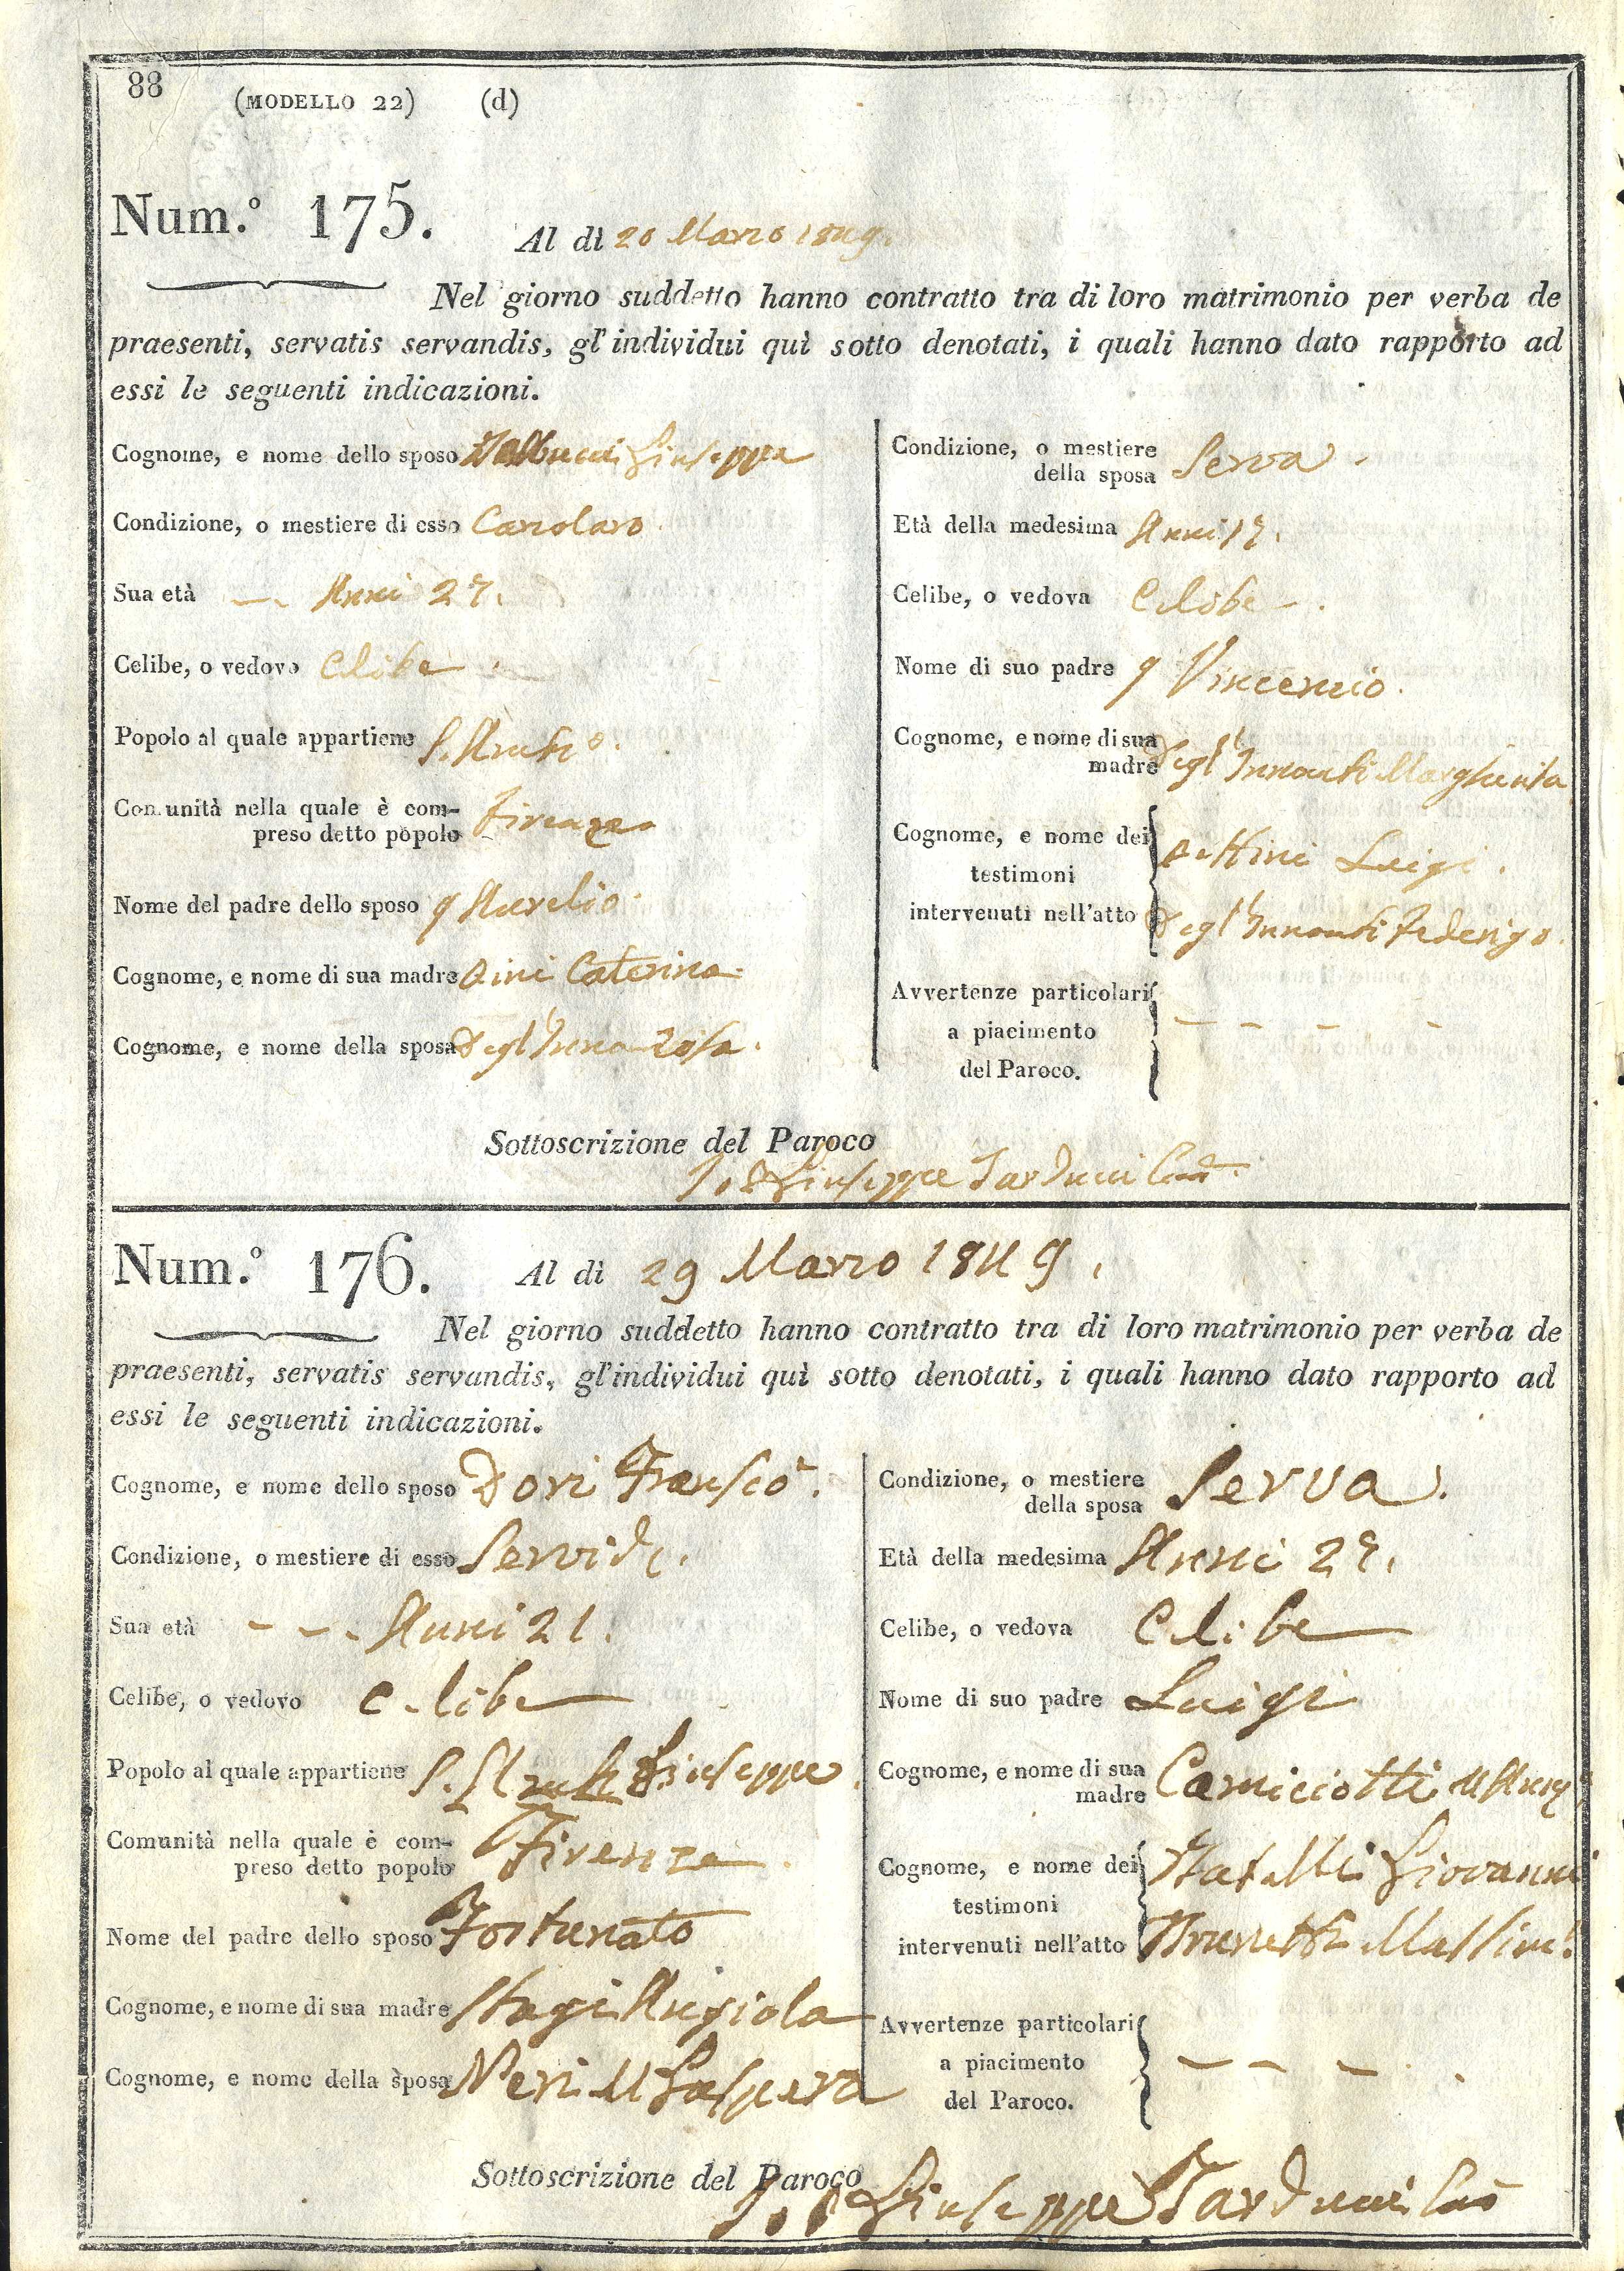 88
(MODELLO 22) (d)
Num.º 175. Al dì 20 Marzo 1849.
Nel giorno suddetto hanno contratto tra di loro matrimonio per verba de
praesenti, servatis servandis, gl'individui quì sotto denotati, i quali hanno dato rapporto ad
essi le seguenti indicazioni.
Cognome, e nome dello sposo Giuseppe
Condizione, o mestiere di esso
Sua età Anni 27.
Celibe, o vedovo Celibe
Popolo al quale appartiene
Comunità nella quale è com-
preso detto popolo Firenze
Nome del padre dello sposo q Aurelio
Cognome, e nome di sua madre Caterina
Cognome, e nome della sposa Degl'Innoc Rosa.
Condizione, o mestiere
della sposa Serva.
Età della medesima Anni 17.
Celibe, o vedova Celibe
Nome di suo padre q Vincenzio.
Cognome, e nome di sua
madre Degl'Innocenti Margherita
Cognome, e nome dei
testimoni Luigi.
intervenuti nell'atto Degl'Innocenti Federigo.
Avvertenze particolari
a piacimento
del Paroco.
Sottoscrizione del Paroco
Giuseppe Tarducci
Num.º 176. Al dì 29 Marzo 1849.
Nel giorno suddetto hanno contratto tra di loro matrimonio per verba de
praesenti, servatis servandis, gl'individui quì sotto denotati, i quali hanno dato rapporto ad
essi le seguenti indicazioni.
Cognome, e nome dello sposo Dori Fransco.
Condizione, o mestiere di esso Servide.
Sua età Anni 21.
Celibe, o vedovo Celibe
Popolo al quale appartiene Giuseppe
Comunità nella quale è com-
preso detto popolo Firenze
Nome del padre dello sposo Fortunato
Cognome, e nome di sua madre Stagi Angiola
Cognome, e nome della sposa Neri M Gaspera
Condizione, o mestiere
della sposa Serva.
Età della medesima Anni 27.
Celibe, o vedova Celibe
Nome di suo padre Luigi
Cognome, e nome di sua
madre Camiciotti
Cognome, e nome dei
testimoni Giovanni
intervenuti nell'atto Brunetti
Avvertenze particolari
a piacimento
del Paroco.
Sottoscrizione del Paroco
Giuseppe Tarducci